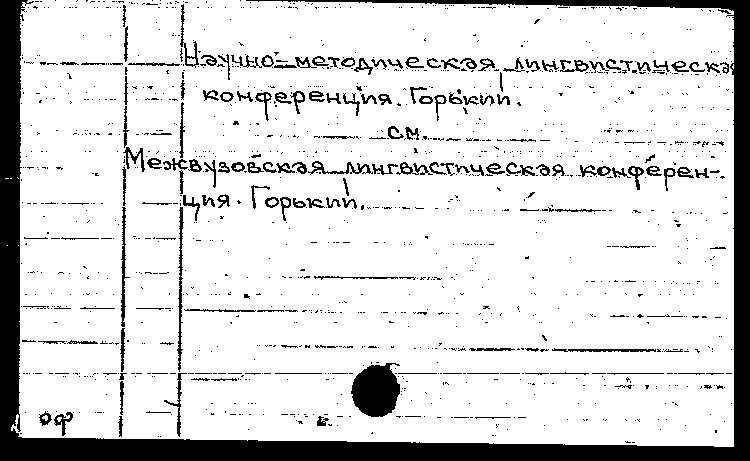 Научно-методическая лингвистическая
конференция. Горький.
см.
Межвузовская лингвистическая конферен-
ция. Горький.
оф